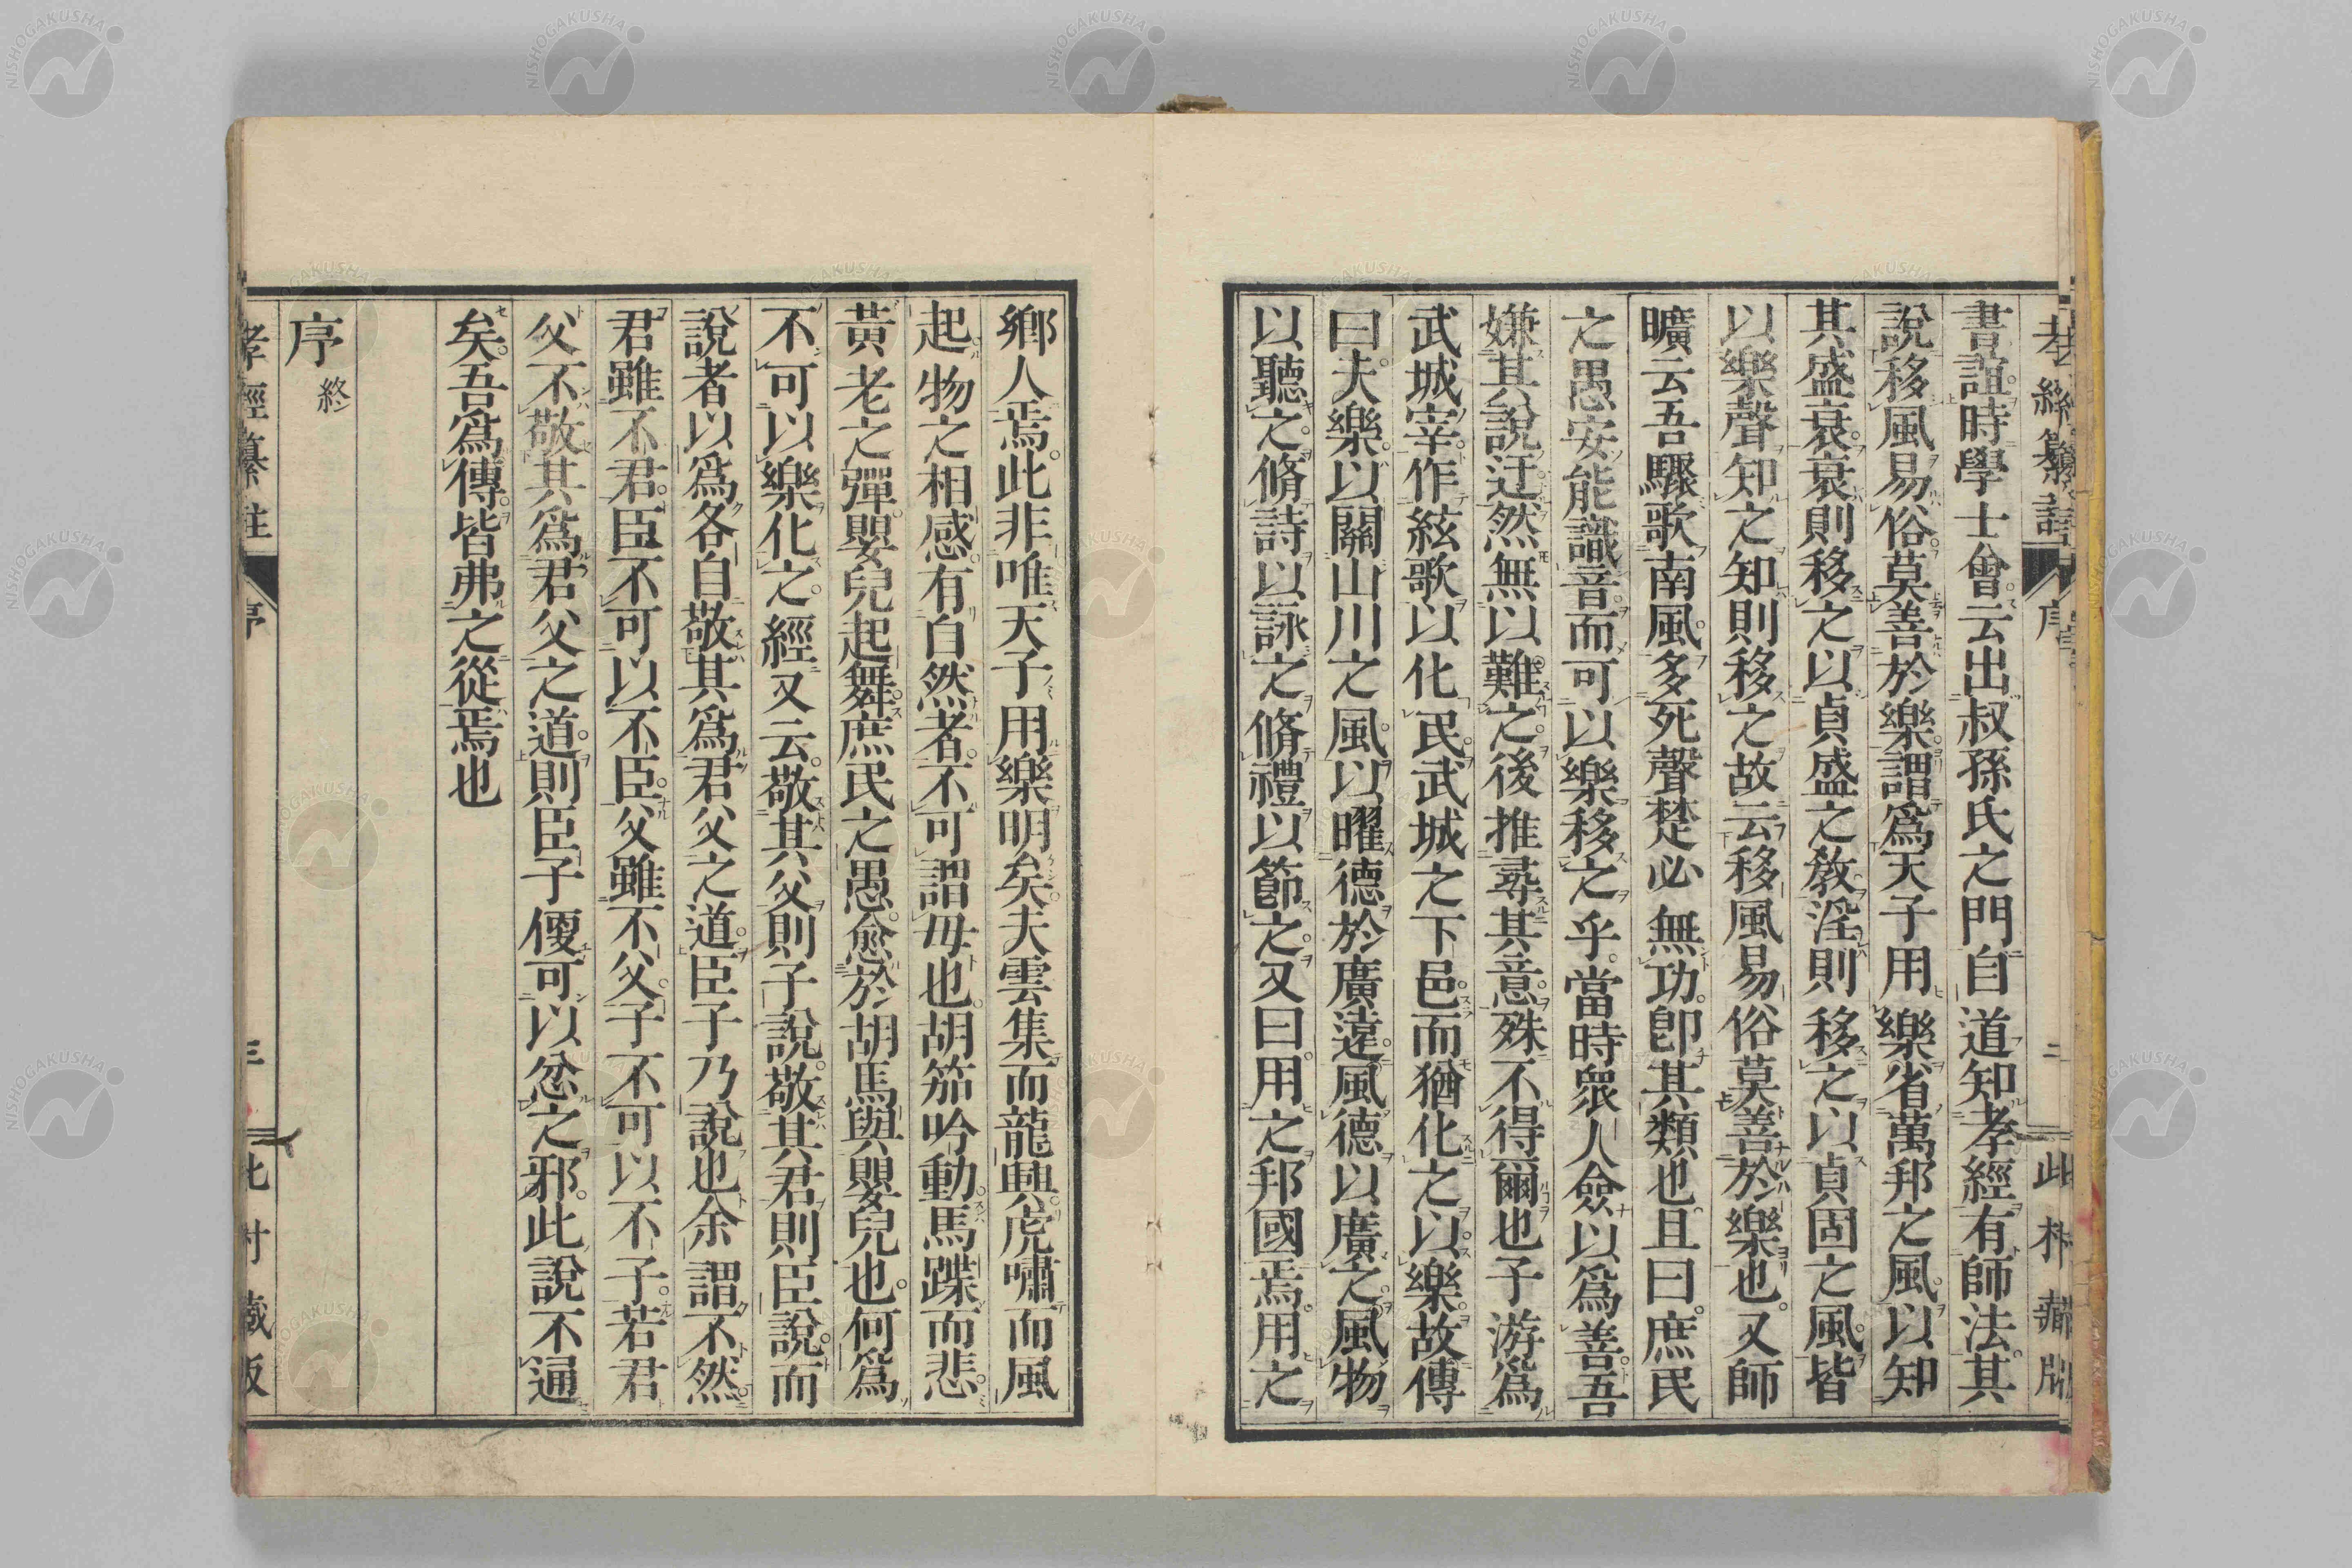 孝經纂註 序 二 此村藏版
書誼時學士會云出叔孫氏之門自道知孝經有師法其
說移風易俗莫善於樂謂爲天子用樂省萬邦之風以知
其盛衰衰則移之以貞盛之敎淫則移之以貞固之風皆
以樂聲知之知則移之故云移風易俗莫善於樂也又師
曠云吾驟歌南風多死聲楚必無功卽其類也且曰庶民
之愚安能識音而可以樂移之乎當時衆人僉以爲善吾
嫌其說迂然無以難之後推尋其意殊不得爾也子游爲
武城宰作絃歌以化民武城之下邑而猶化之以樂故傳
曰夫樂以關山川之風以曜德於廣遠風德以廣之風物
以聽之脩詩以詠之脩禮以節之又曰用之邦國焉用之
鄉人焉此非唯天子用樂明矣夫雲集而龍興虎嘯而風
起物之相感有自然者不可謂毋也胡笳吟動馬蹀而悲
黃老之彈嬰兒起舞庶民之愚愈於胡馬與嬰兒也何爲
不可以樂化之經又云敬其父則子說敬其君則臣說而
說者以爲各自敬其爲君父之道臣子乃說也余謂不然
君雖不君臣不可以不臣父雖不父子不可以不子若君
父不敬其爲君父之道則臣子便可以忿之邪此說不通
矣吾爲傳皆弗之從焉也
序終
孝經纂註 序 三 此村藏版
NISHOGAKUSHA